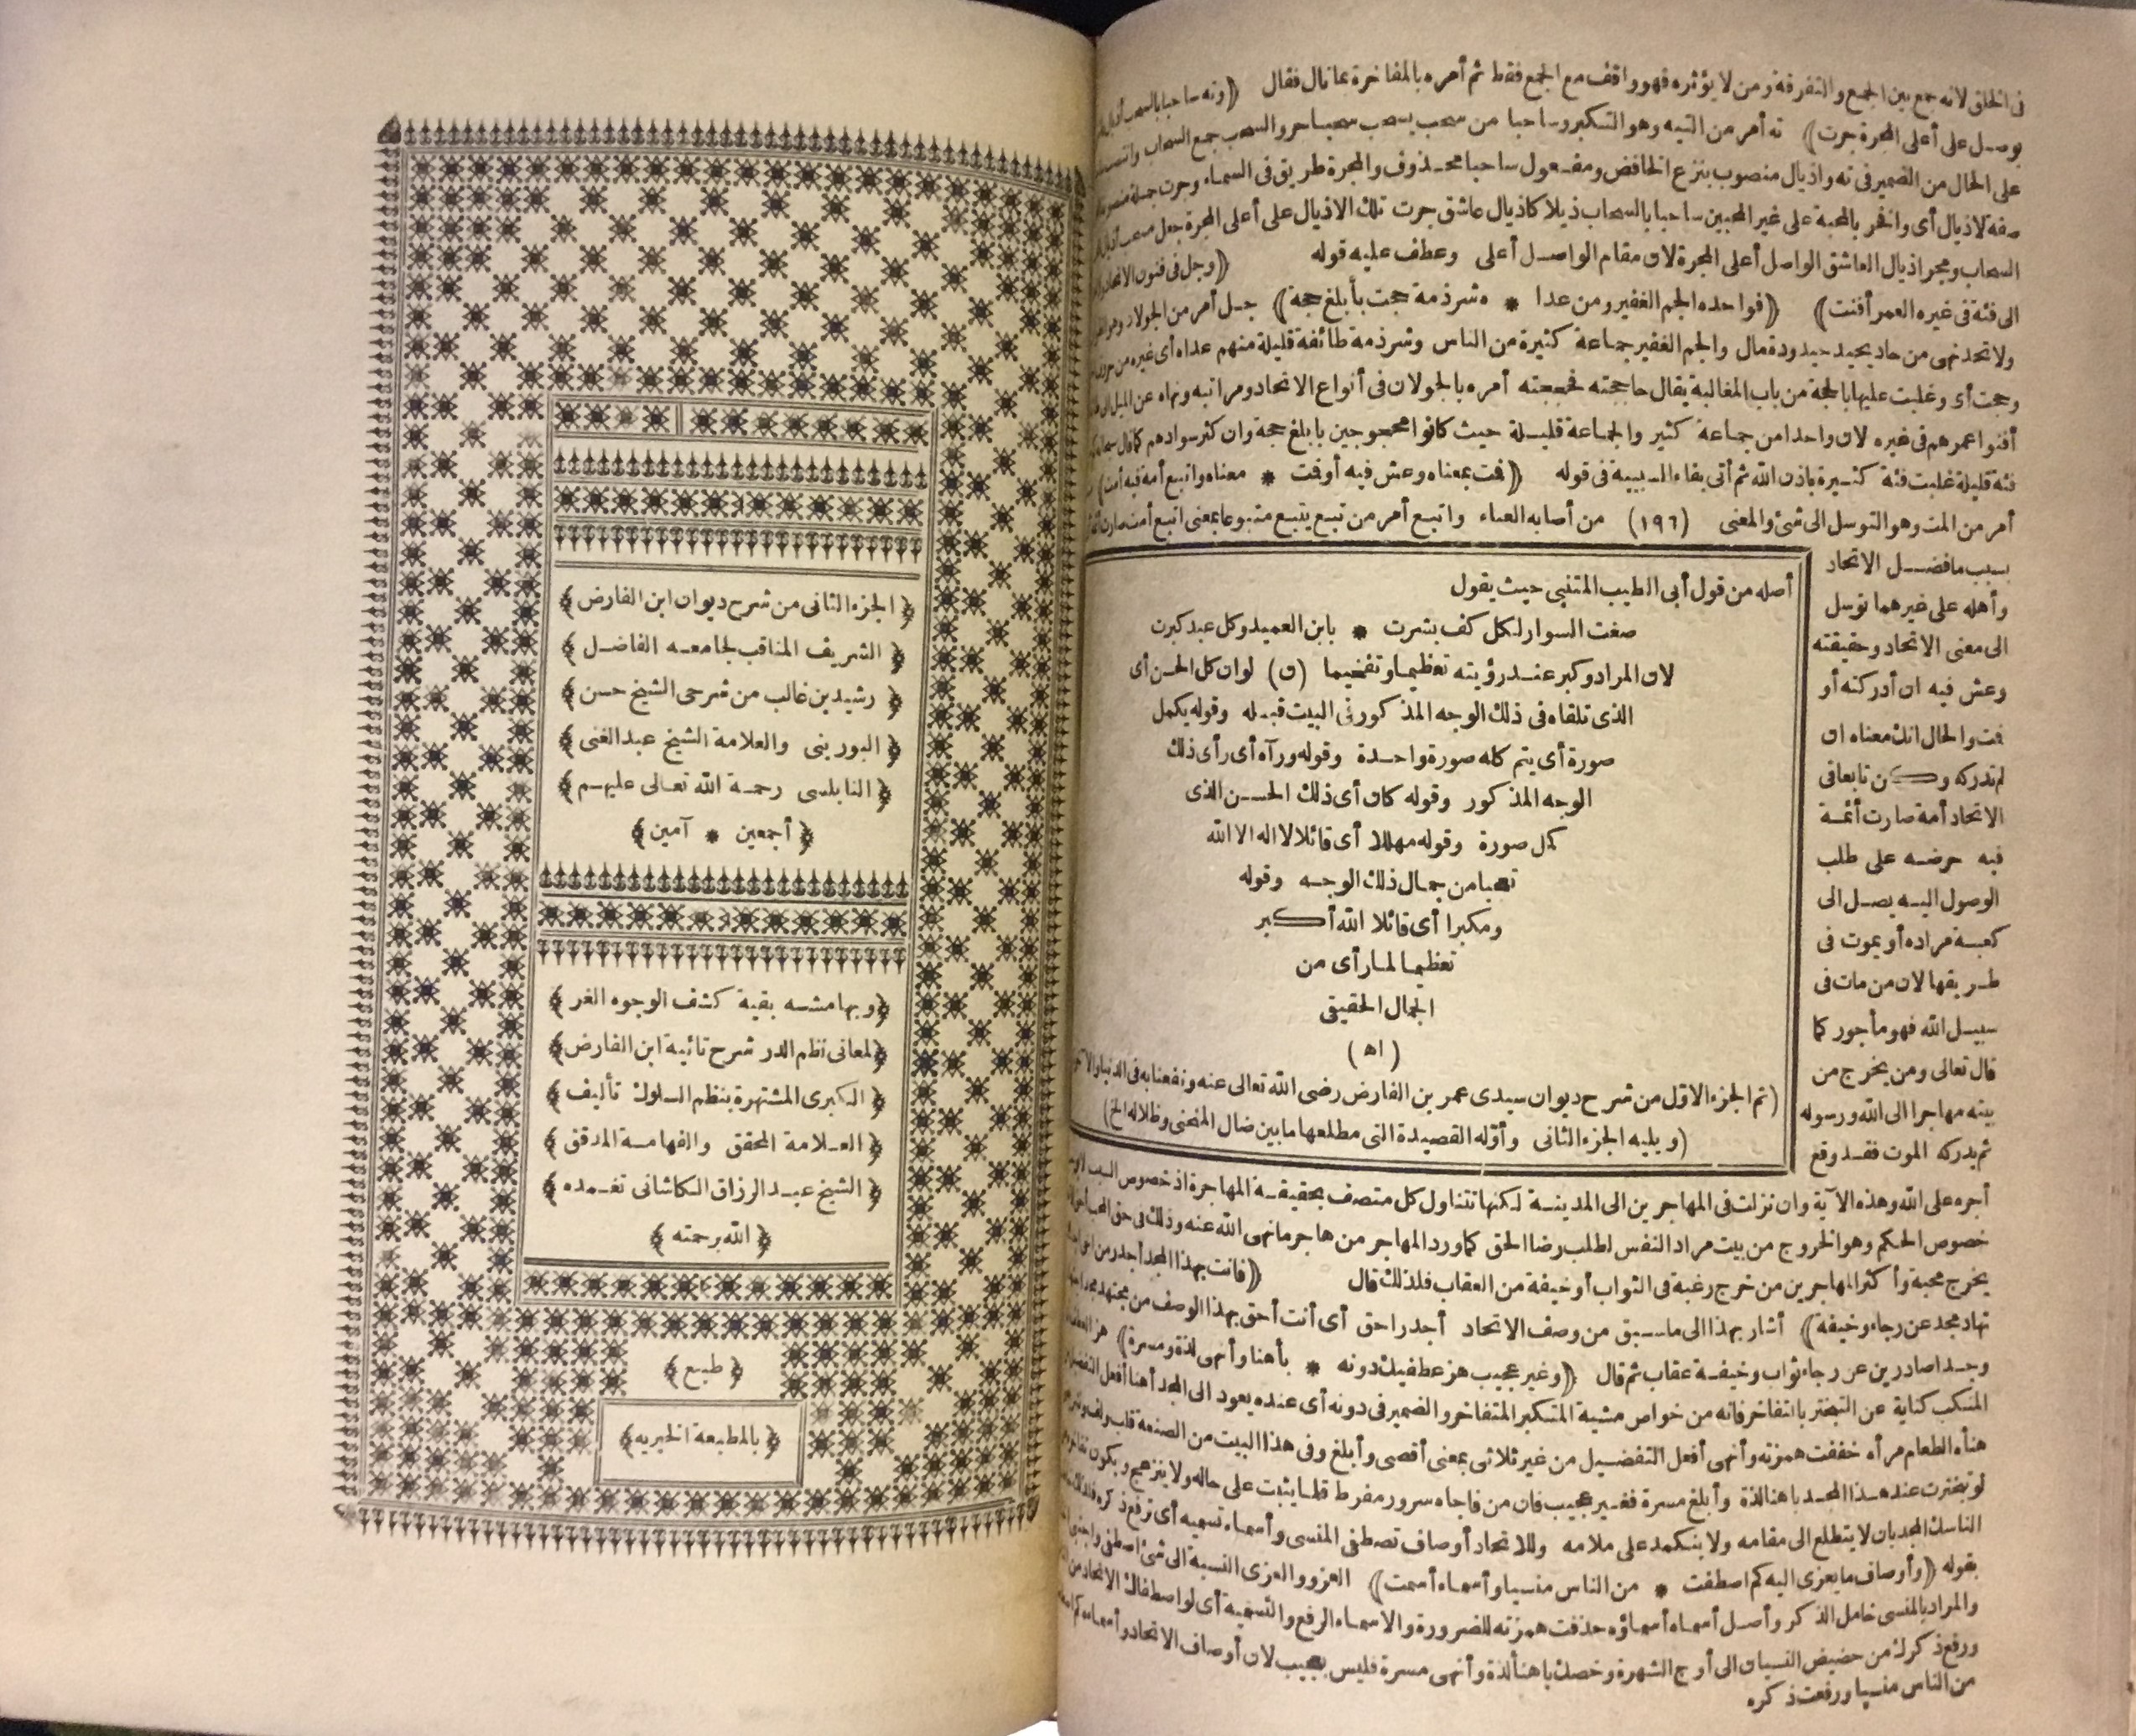 فى الخلق لانه جمع بين الجمع والتفرقة ومن لا يؤثره فهو واقف مع الجمع فقط ثم أمره بالمفاخرة بما نال فقال ﴿وته ساحبا بالسحب أذيال
بوصل على أعلى المجرة جرت﴾ ته أمر من التيه وهو التكبر وساحبا من سحب يسحب سحبا جر والسحب جمع السحاب
على الحال من الضمير فى ته واذيال منصوب بنزع الخافض ومفعول ساحبا محذوف والمجرة طريق فى السماء وجرت جملة
صفة لاذيال أى وافخر بالمحبة على غير المحبين ساحبا بالسحاب ذيلا كاذيال عاشق جرت تلك الاذيال على أعلى المجرة جعل
السحاب ومجر اذيال العاشق الواصل أعلى المجرة لان مقام الواصل أعلى وعطف عليه قوله ﴿وجل فى فنون الاتحاد
الى فئة فى غيره العمر أفنت﴾ ﴿فواحده الجم الغفير ومن عدا * ه شرذمة حجت بأبلغ حجة﴾ جل أمر من الجولان
ولا تحد نهى من حاد يحيد حيدودة مال والجم الغفير جماعة كثيرة من الناس وشرذمة طائفة قليلة منهم عداه أى غيره
وحجت أى وغلبت عليها بالحجة من باب المغالبة يقال حاججته فحججته أمره بالجولان فى أنواع الاتحاد ومراتبه ونهاه عن الميل
أفنوا عمرهم فى غيره لان واحدا من جماعة كثير والجماعة قليلة حيث كانوا محجوجين بابلغ حجة وان كثر سوادهم كما قال
فئة قليلة غلبت فئة كثيرة باذن الله ثم أتى بفاء السببية فى قوله ﴿فمت بمعناه وعش فيه أو فمت * معناه واتبع أمة فيه أمت﴾
أمر من المت وهو التوسل الى شئ والمعنى (١٩٦) من أصابه العناء واتبع أمر من تبع يتبع متبوعا بمعنى اتبع أمت صارت
بسبب ما فضل الاتحاد
وأهله على غيرهما توسل
الى معنى الاتحاد وحقيقته
وعش فيه ان أدركته أو
فمت والحال انك معناه ان
لم تدركه وكن تابعا فى
الاتحاد أمة صارت أئمة
فيه حرضه على طلب
الوصول اليه يصل الى
كعبة مراده أو يموت فى
طريقها لان من مات فى
سبيل الله فهو مأجور كما
قال تعالى ومن يخرج من
بيته مهاجرا الى الله ورسوله
ثم يدركه الموت فقد وقع
أصله من قول أبى الطيب المتنبى حيث يقول
صغت السوار لكل كف بشرت * بابن العميد وكل عبد كبرت
لان المراد وكبر عند رؤيته تعظيما وتفخيما (ن) لو ان كل الحسن أى
الذى تلقاه فى ذلك الوجه المذكور فى البيت قبله وقوله يكمل
صورة أى يتم كله صورة واحدة وقوله ورآه أى رأى ذلك
الوجه المذكور وقوله كان أى ذلك الحسن الذى
كمل صورة وقوله مهللا أى قائلا لا اله الا الله
تعجبا من جمال ذلك الوجه وقوله
ومكبرا أى قائلا الله أكبر
تعظيما لما رأى من
الجمال الحقيقى
(اه)
(تم الجزء الاول من شرح ديوان سيدى عمر بن الفارض رضى الله تعالى عنه ونفعنا به فى الدنيا والآ
(ويليه الجزء الثانى وأوّله القصيدة التى مطلعها ما بين ضال المنحنى وظلاله الخ)
أجره على الله وهذه الآية وان نزلت فى المهاجرين الى المدينة لكنها تتناول كل متصف بحقيقة المهاجرة اذ خصوص السبب
خصوص الحكم وهو الخروج من بيت مراد النفس لطلب رضا الحق كما ورد المهاجر من هاجر ما نهى الله عنه وذلك فى حق
يخرج محبة وأكثر المهاجرين من خرج رغبة فى الثواب أو خيفة من العقاب فلذلك قال ﴿فانت بهذا المجد أجدر من
تهاد مجد عن رجاء وخيفة﴾ أشار بهذا الى ما سبق من وصف الاتحاد أجدر احق أى أنت أحق بهذا الوصف من مجتهد
وجد اصادرين عن رجاء ثواب وخيفة عقاب ثم قال ﴿وغير عجيب هز عطفيك دونه * بأهنا وأنهى لذة ومسرة﴾
المنكب كناية عن التبختر بالتفاخر فانه من خواص مشية المتكبر المتفاخر والضمير فى دونه أى عنده يعود الى المجد أهنا أفعل
هنأه الطعام مرأه خففت همزته وأنهى أفعل التفضيل من غير ثلاثى بمعنى أقصى وأبلغ وفى هذا البيت من الصنعة
لو تبخترت عند هذا المجد باهنا لذة وأبلغ مسرة فغير عجيب فان من فاجاه سرور مفرط قلما يثبت على حاله ولا ينزعج
الناسك المجد بان لا يتطلع الى مقامه ولا ينكمد على ملامه وللاتحاد أوصاف تصطفى المنسى وأسماء تسميه أى ترفع ذكره
بقوله ﴿وأوصاف ما يعزى اليه كم اصطفت * من الناس منسيا وأسماء أسمت﴾ العزو والعزى النسبة الى شئ
والمراد بالمنسى خامل الذكر وأصل أسماه أسماؤه حذفت همزته للضرورة والاسماء الرفع والتسمية أى لو اصطفاك الاتحاد
ورفع ذكرك من حضيض النسيان الى أوج الشهرة وخصك باهنأ لذة وأنهى مسرة فليس بعجيب لان أوصاف الاتحاد
من الناس منسيا ورفعت ذكره
﴿الجزء الثانى من شرح ديوان ابن الفارض﴾
﴿الشريف المناقب لجامعه الفاضل﴾
﴿رشيد بن غالب من شرحى الشيخ حسن﴾
﴿البورينى والعلامة الشيخ عبد الغنى﴾
﴿النابلسى رحمة الله تعالى عليهم﴾
﴿أجمعين * آمين﴾
﴿وبهامشه بقية كشف الوجوه الغر﴾
﴿لمعانى نظم الدر شرح تائية ابن الفارض﴾
﴿الكبرى المشتهرة بنظم السلوك تأليف﴾
﴿العلامة المحقق والفهامة المدقق﴾
﴿الشيخ عبد الرزاق الكاشانى تغمده﴾
﴿الله برحمته﴾
﴿طبع﴾
﴿بالمطبعة الخيريه﴾